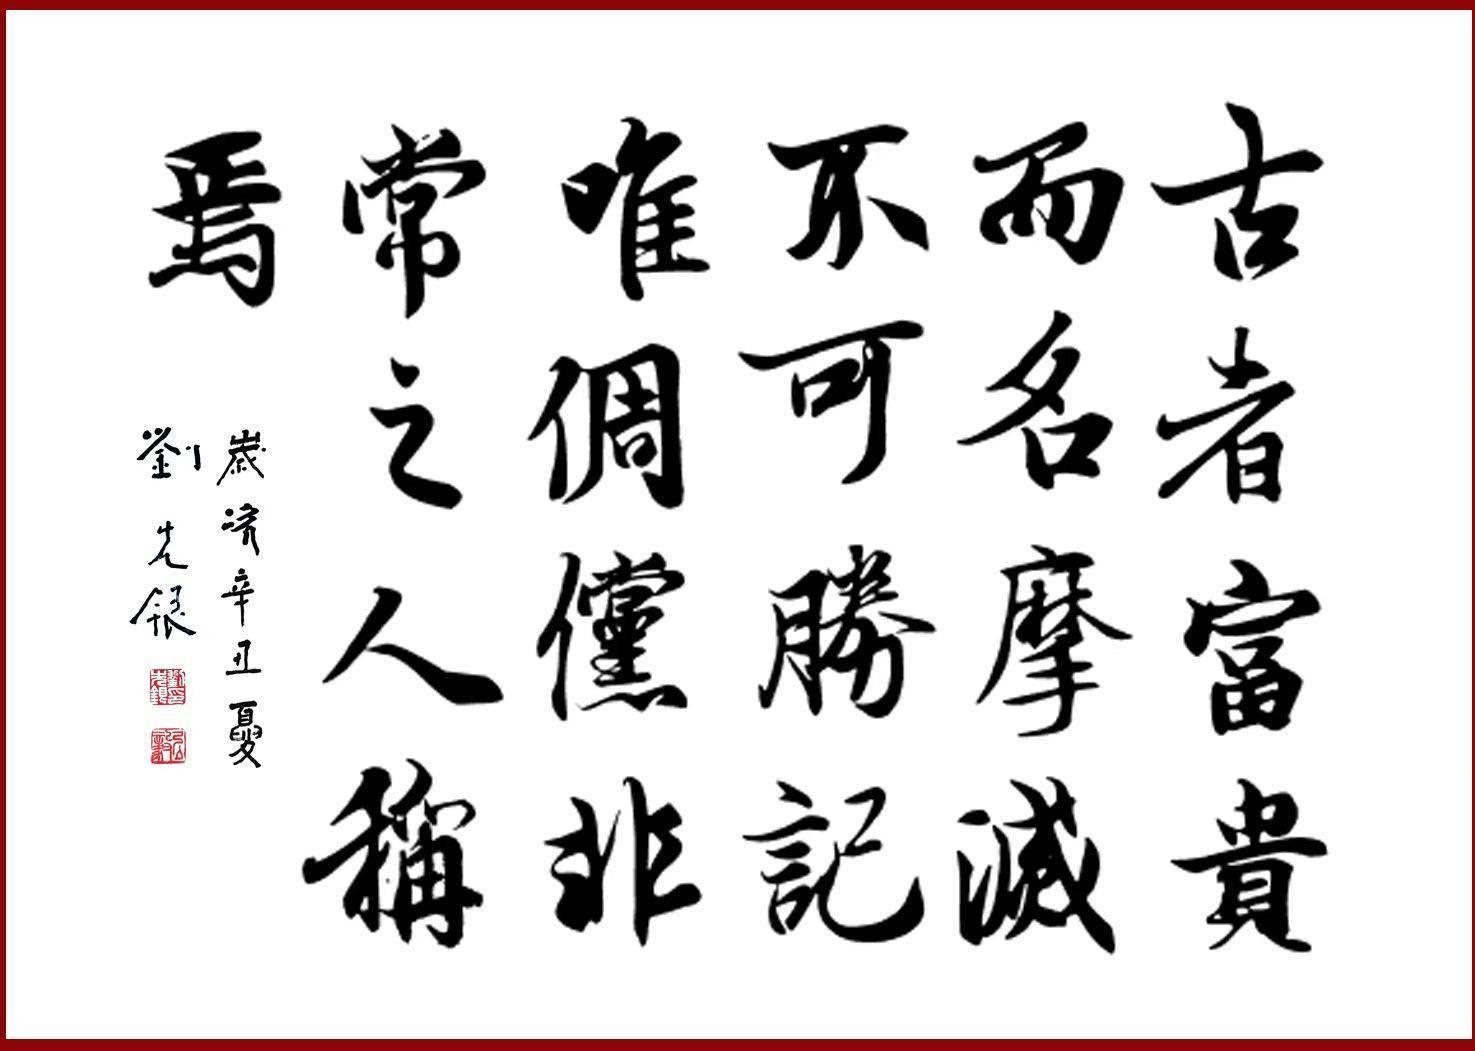 古者富貴
而名摩滅
不可勝記
唯倜儻非
常之人稱
焉
歲次辛丑夏
劉先銀